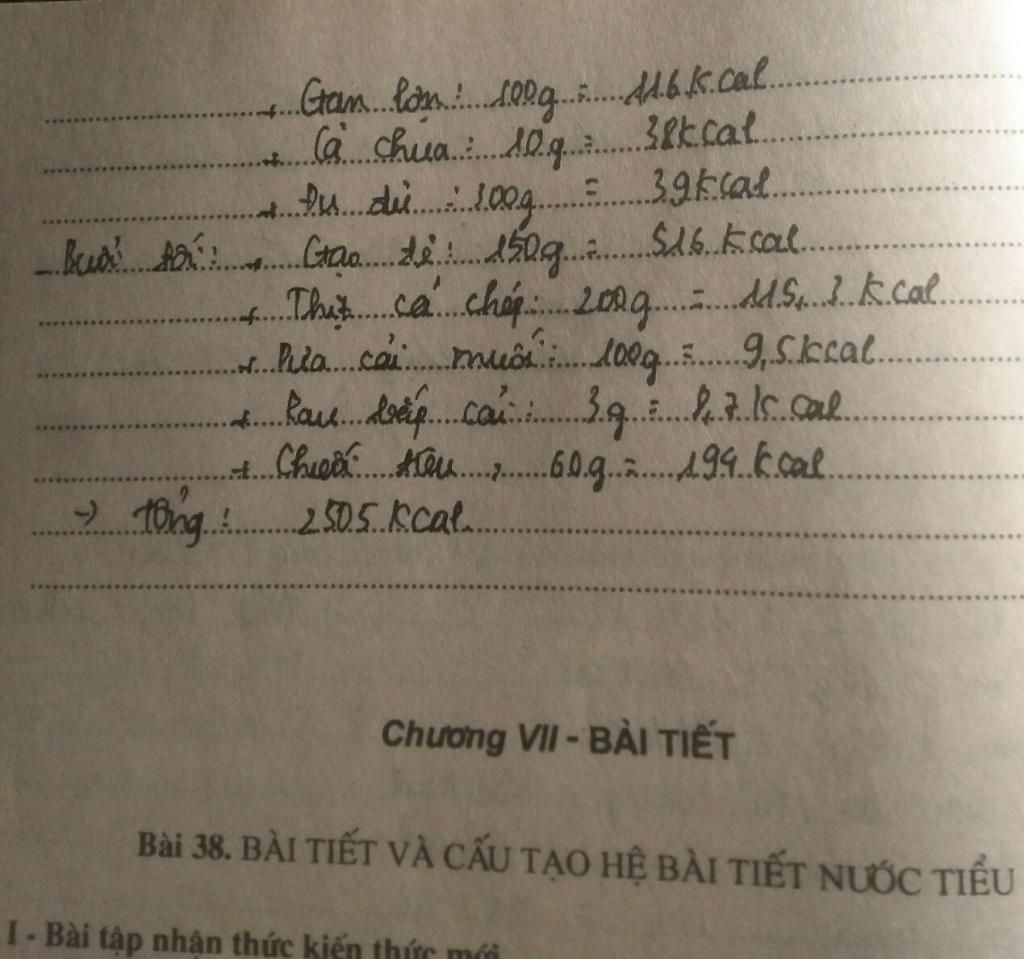 + Gan lợn : 100g = 116 Kcal
+ Cà chua : 10g = 38 Kcal
+ Đu đủ : 100g = 39 Kcal
- Buổi tối : + Gạo tẻ : 150g = 516 Kcal
+ Thịt cá chép : 200g = 115, 2 Kcal
+ Dưa cải muối : 100g = 9,5 Kcal
+ Rau bắp cải : 3g = 8,7 Kcal
+ Chuối tiêu , 60g = 194 Kcal
→ tổng : 2505 Kcal.
Chương VII - BÀI TIẾT
Bài 38. BÀI TIẾT VÀ CẤU TẠO HỆ BÀI TIẾT NƯỚC TIỂU
I - Bài tập nhận thức kiến thức mới